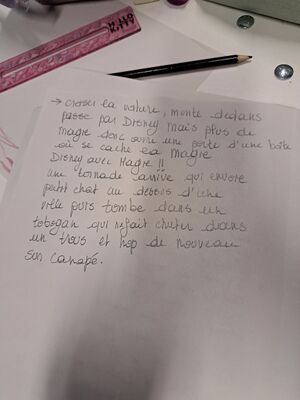 → croser la voiture, monte dedans
passe par Disney mais plus de
magie donc ouvre une porte d'une boîte
où se cache la magie
Disney avec Magie !!
une tornade arrive qui envoie
petit chat au dessus d'une
ville puis tombe dans un
tobogan qui refait chuter dans
un trous et hop de nouveau
son canapé.